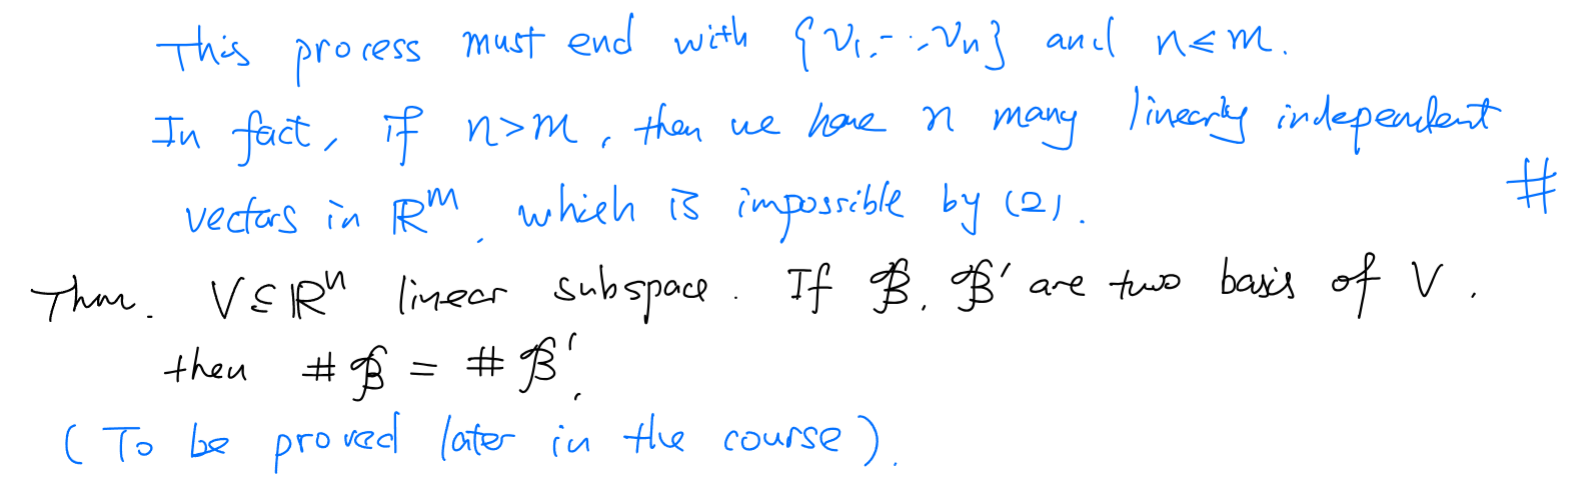 This process must end with {v₁,⋯,vₙ} and n≤m.
In fact, if n>m, then we have n many linearly independent
vectors in ℝᵐ, which is impossible by (2). #
Thm. V⊆ℝⁿ linear subspace. If 𝓑, 𝓑' are two basis of V,
then #𝓑 = #𝓑'.
(To be proved later in the course).